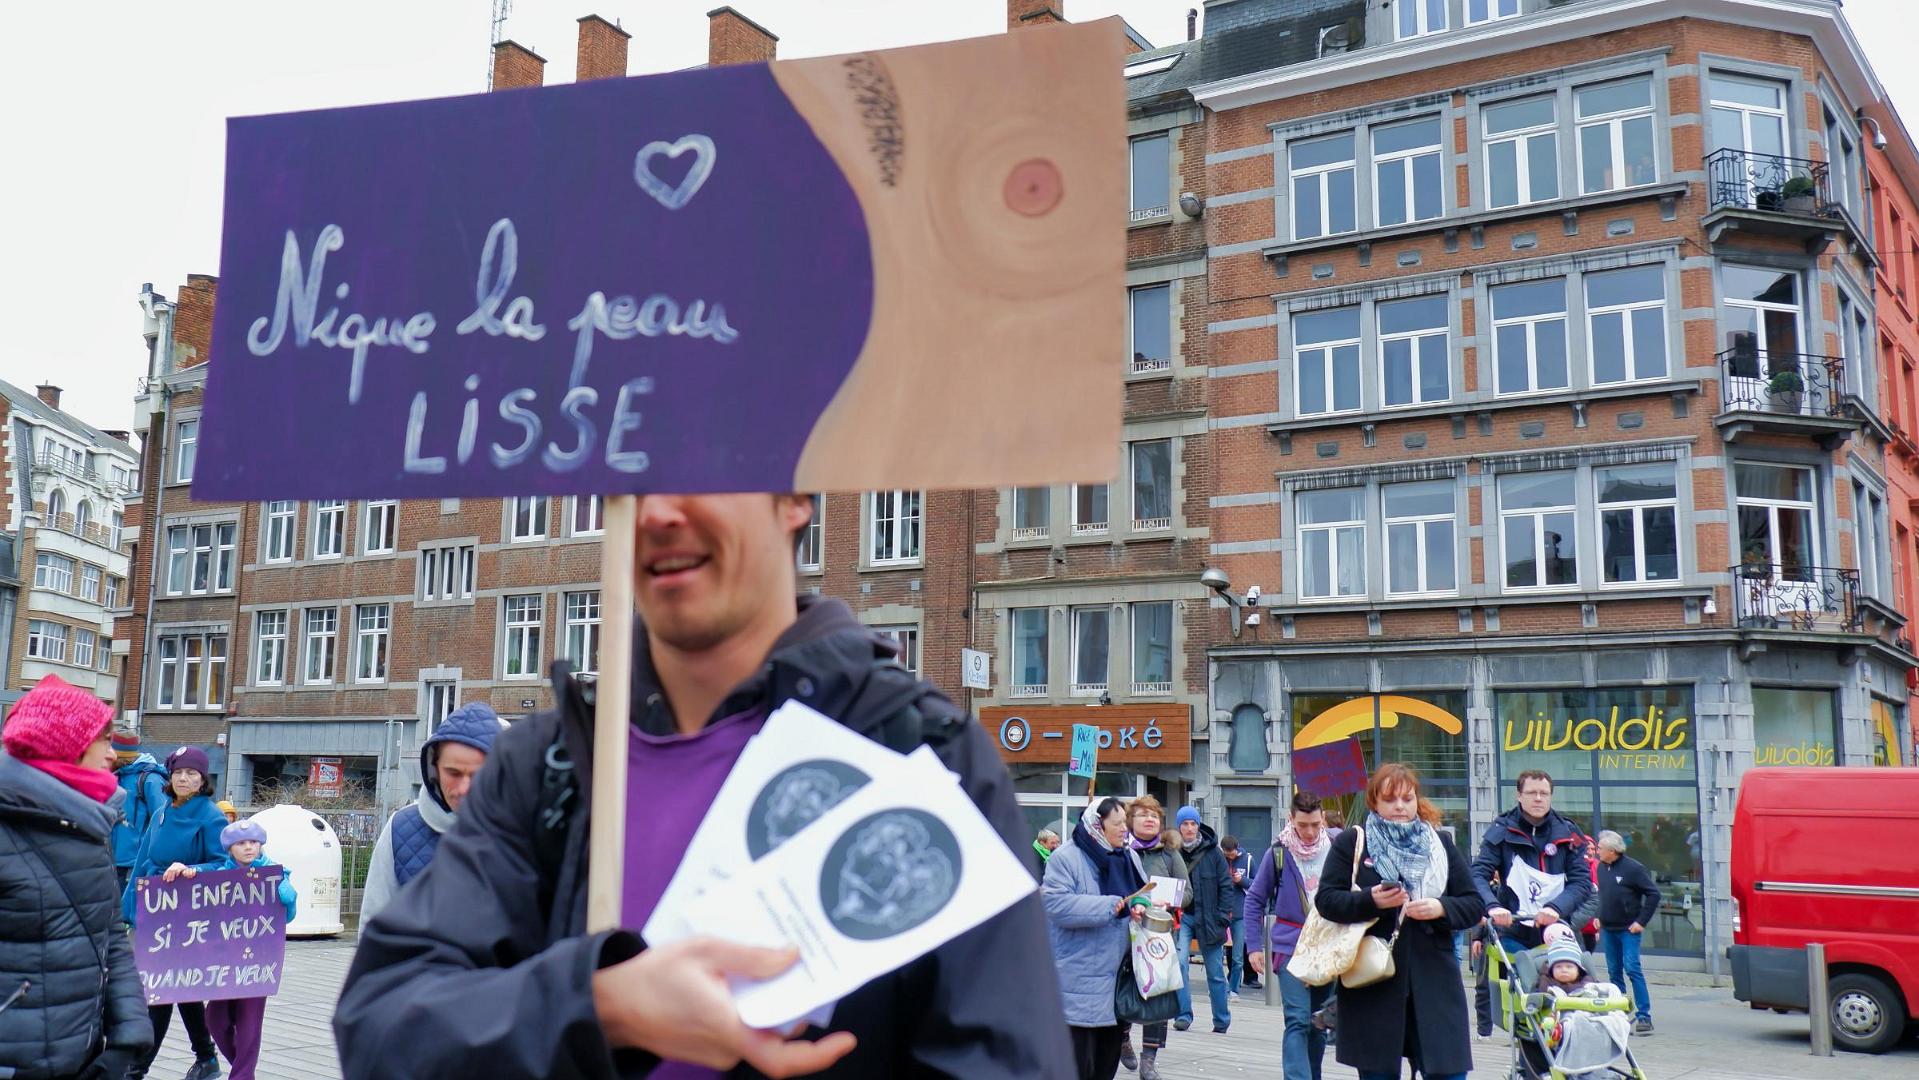 Nique la peau
LiSSE
UN ENFANT
SI JE VEUX
QUAND JE VEUX
vivaldis
INTERIM
vivaldis